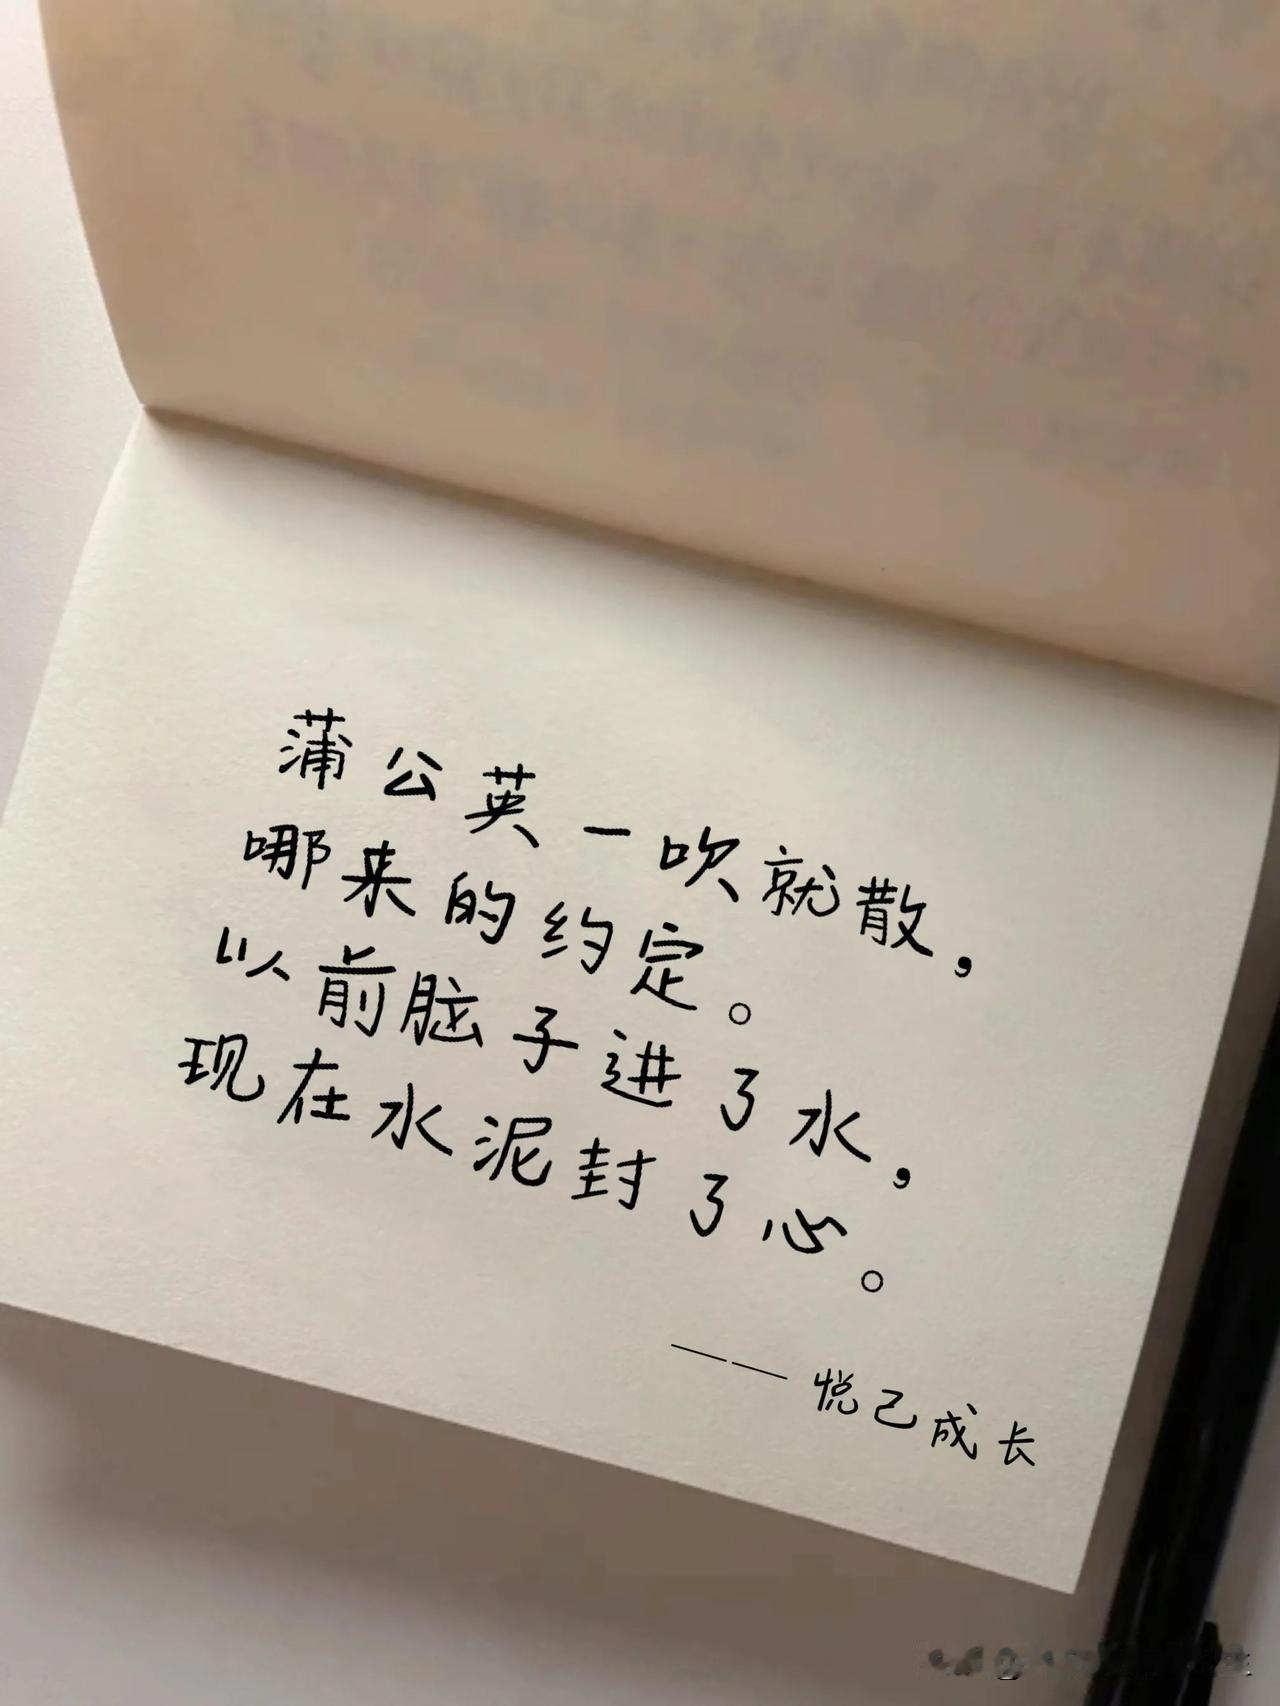 蒲公英一吹就散，
哪来的约定。
以前脑子进了水，
现在水泥封了心。
——悦己成长